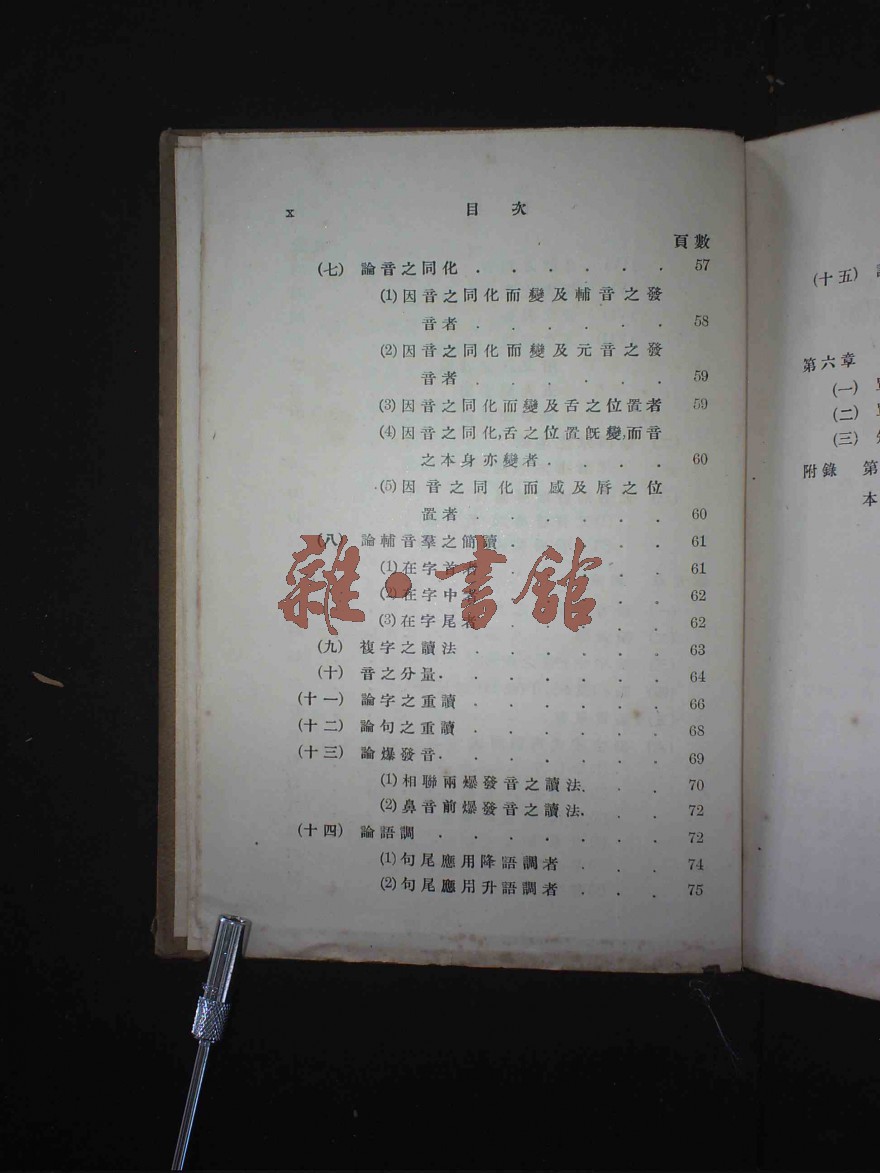 x 目 次
頁數
(七) 論音之同化 . . . . . . . 57
(1)因音之同化而變及輔音之發
音者 . . . . . . . 58
(2)因音之同化而變及元音之發
音者 . . . . . . . 59
(3)因音之同化而變及舌之位置者 59
(4)因音之同化,舌之位置旣變,而音
之本身亦變者 . . . . . 60
(5)因音之同化而感及唇之位
置者 . . . . . . . 60
(八) 論輔音羣之簡讀 . . . . . 61
(1)在字首者 . . . . . . 61
(2)在字中者 . . . . . . 62
(3)在字尾者 . . . . . . 62
(九) 複字之讀法 . . . . . . . 63
(十) 音之分量 . . . . . . . 64
(十一) 論字之重讀 . . . . . . 66
(十二) 論句之重讀 . . . . . . 68
(十三) 論爆發音 . . . . . . . 69
(1)相聯兩爆發音之讀法 . . . 70
(2)鼻音前爆發音之讀法 . . . 72
(十四) 論語調 . . . . . . . 72
(1)句尾應用降語調者 . . . 74
(2)句尾應用升語調者 . . . 75
雜·書館
(十五)
第六章
(一)
(二)
(三)
附錄 第
本